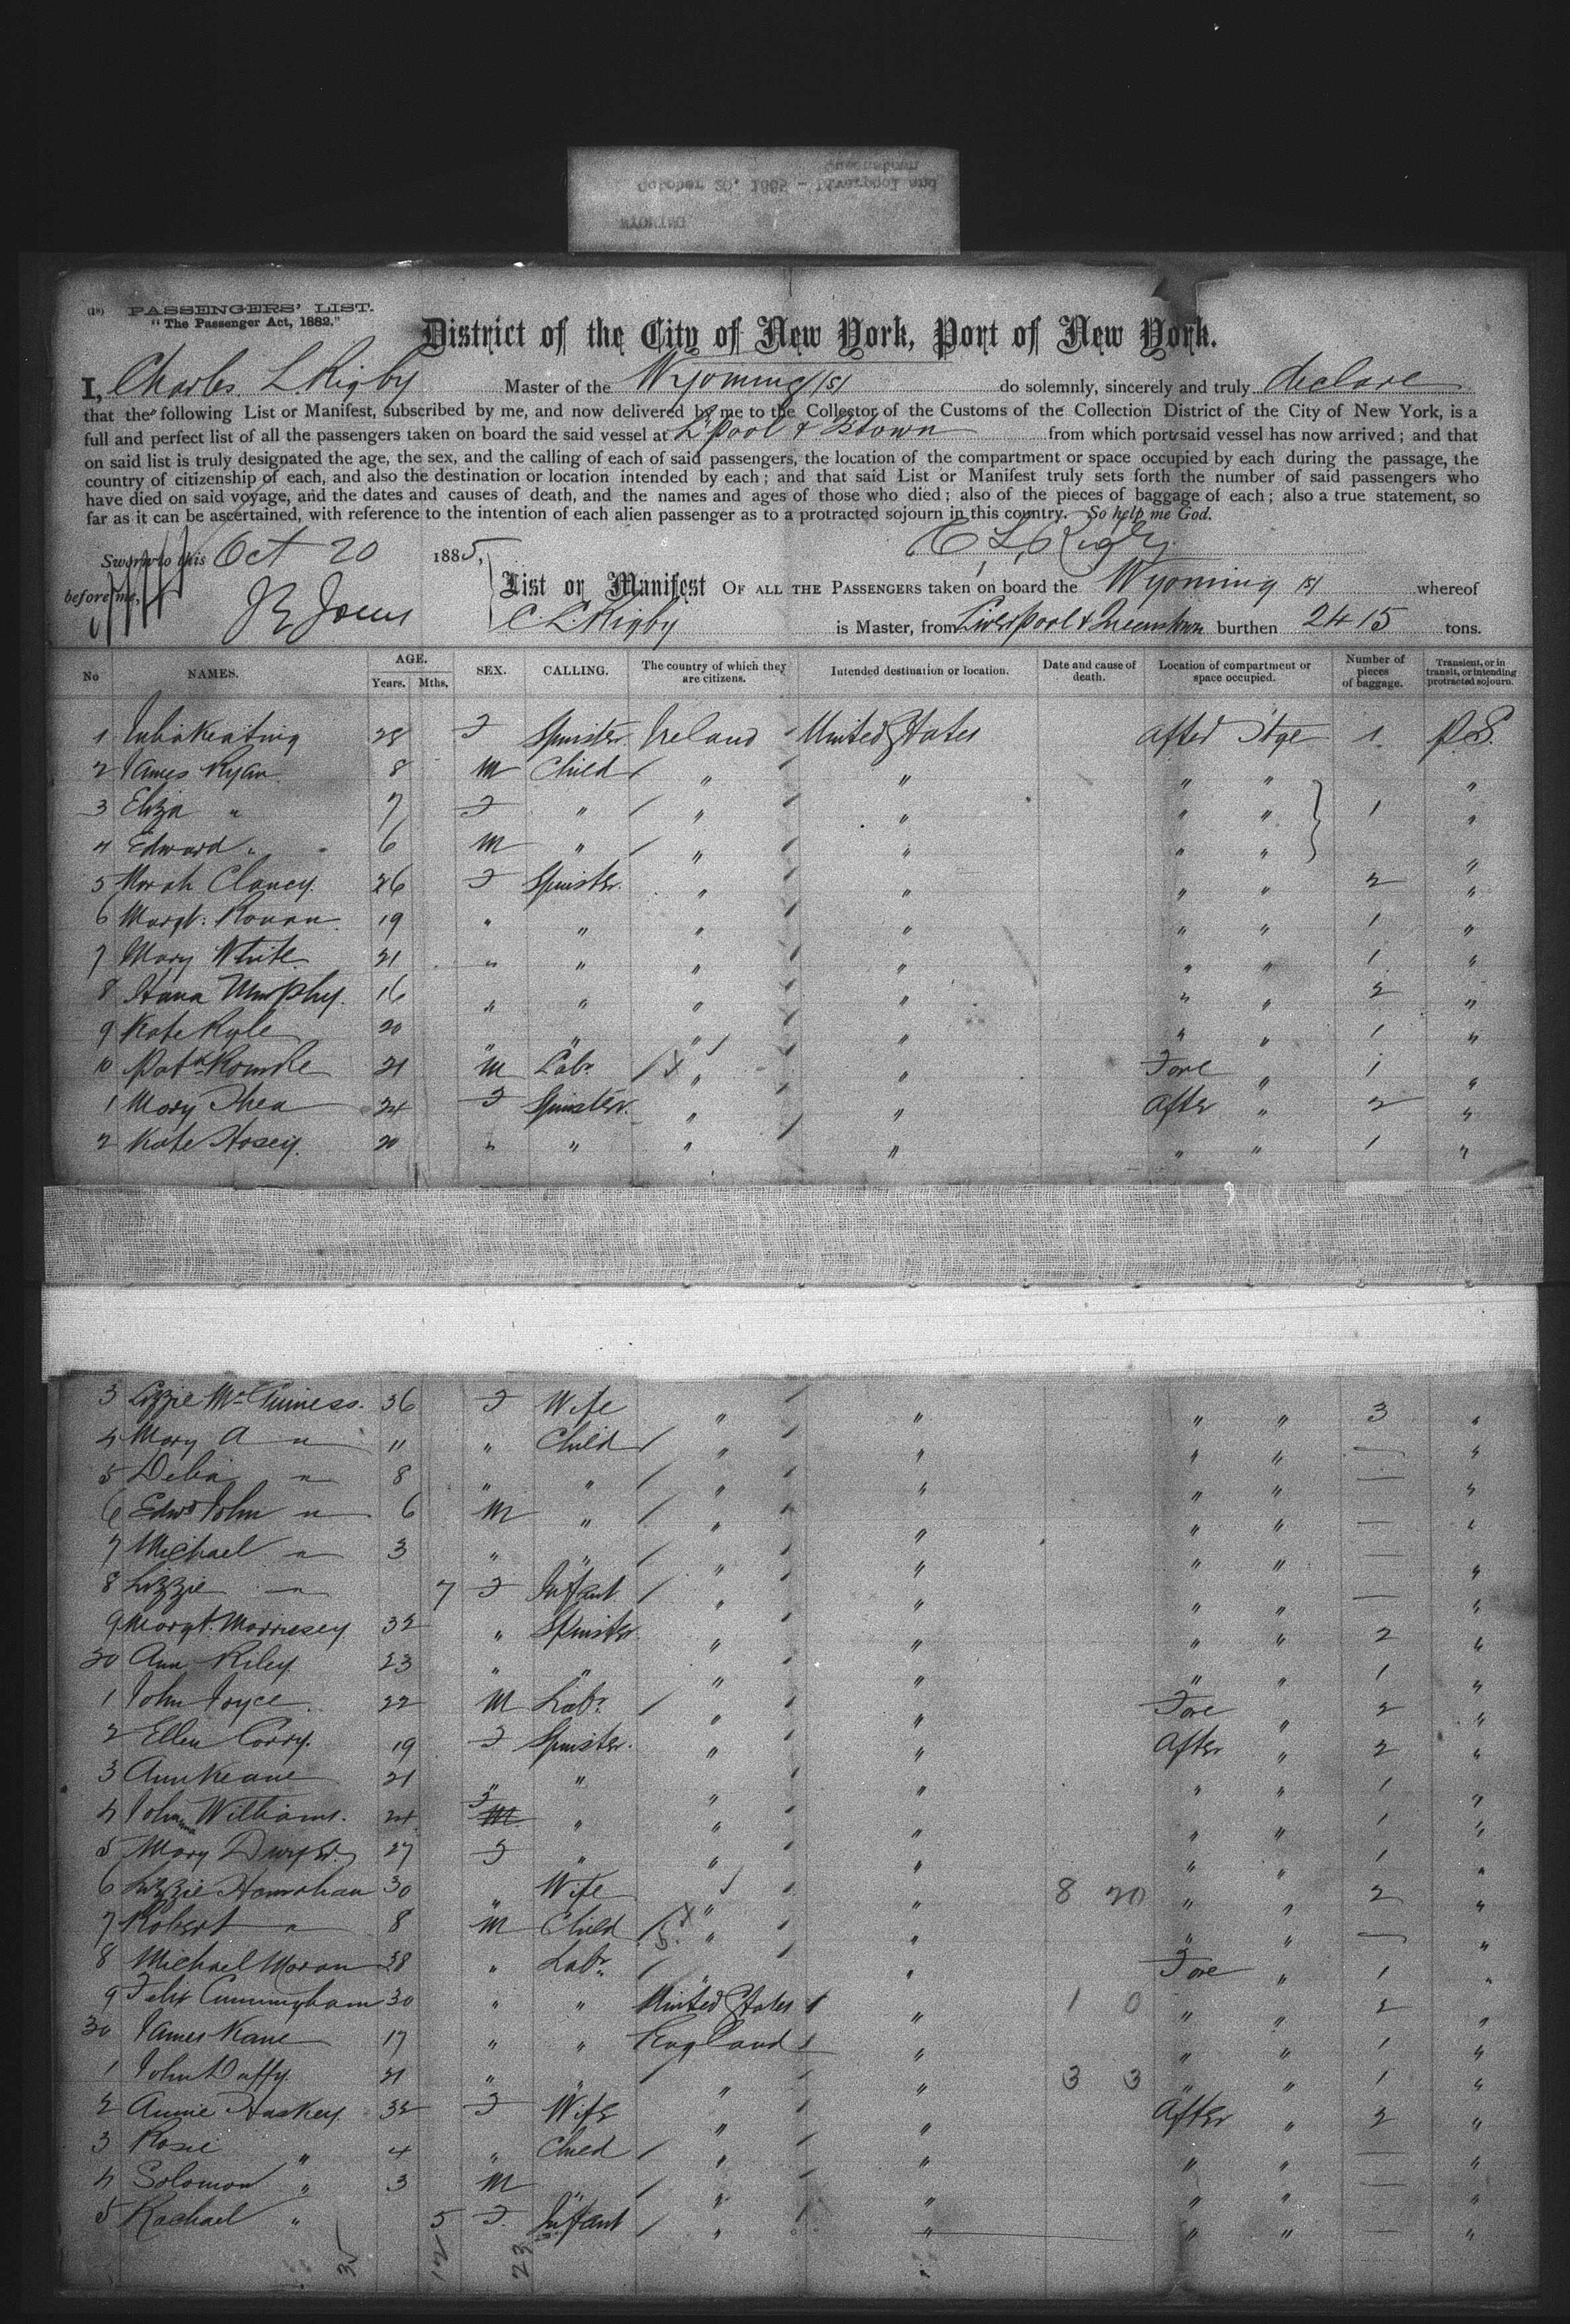 WYOMING
October 20, 1885 - Liverpool and
Queenstown
(18) PASSENGERS' LIST.
"The Passenger Act, 1882."
District of the City of New York, Port of New York.
I, Charles L Rigby Master of the Wyoming (s) do solemnly, sincerely and truly declare
that the following List or Manifest, subscribed by me, and now delivered by me to the Collector of the Customs of the Collection District of the City of New York, is a
full and perfect list of all the passengers taken on board the said vessel at L'pool & Qtown from which port said vessel has now arrived; and that
on said list is truly designated the age, the sex, and the calling of each of said passengers, the location of the compartment or space occupied by each during the passage, the
country of citizenship of each, and also the destination or location intended by each; and that said List or Manifest truly sets forth the number of said passengers who
have died on said voyage, and the dates and causes of death, and the names and ages of those who died; also of the pieces of baggage of each; also a true statement, so
far as it can be ascertained, with reference to the intention of each alien passenger as to a protracted sojourn in this country. So help me God.
Sworn to this Oct 20 1885, C L Rigby
before me, List or Manifest OF ALL THE PASSENGERS taken on board the Wyoming (s) whereof
C L Rigby is Master, from Liverpool & Queenstown burthen 2415 tons.
No NAMES. AGE. Years. Mths. SEX. CALLING. The country of which they are citizens. Intended destination or location. Date and cause of death. Location of compartment or space occupied. Number of pieces of baggage. Transient, or in transit, or intending protracted sojourn.
1 Julia Keating 28 F Spinster Ireland United States After Stge 1 P.S.
2 James Ryan 8 M Child " " " " "
3 Eliza " 7 F " " " " " 1 "
4 Edward " 6 M " " " " " "
5 Norah Clancy 26 F Spinster " " " " 2 "
6 Margt. Ronan 19 " " " " " " 1 "
7 Mary White 21 " " " " " " 1 "
8 Hana Murphy 16 " " " " " " 2 "
9 Kate Ryle 20 " " " " " " 1 "
10 Patk 21 M Labr " " Fore " 1 "
1 Mary Shea 24 F Spinster " " After " 2 "
2 Kate Hosey 20 " " " " " " 1 "
3 Lizzie McGuiness 36 F Wife " " " " 3 "
4 Mary A " 11 " Child " " " " — "
5 Delia " 8 " " " " " " — "
6 Edwd John " 6 M " " " " " — "
7 Michael " 3 " " " " " " — "
8 Lizzie " 7 F Infant " " " " — "
9 Margt. Morrissey 32 " Spinster " " " " 2 "
20 Ann Riley 23 " " " " " " 1 "
1 John Joyce 22 M Labr " " Fore " 2 "
2 Ellen Corry 19 F Spinster " " After " 2 "
3 Ann Keane 21 " " " " " " 1 "
4 Johanna Williams 24 F " " " " " 1 "
5 Mary Dwyer 27 F " " " " " 1 "
6 Lizzie Hanrahan 30 " Wife " " 8 20 " " 2 "
7 Robert " 8 M Child " " " " — "
8 Michael Moran 28 " Labr " " Fore " 1 "
9 Felix Cunningham 30 " " United States " 1 0 " " 2 "
30 James Kane 17 " " England " " " 1 "
1 John Duffy 21 " " " " 3 3 " " 1 "
2 Annie Haskey 32 F Wife " " After " 2 "
3 Rosie " 4 " Child " " " " — "
4 Solomon " 3 M " " " " " — "
5 Rachael " 5 F Infant " " " " — "
35 12 23